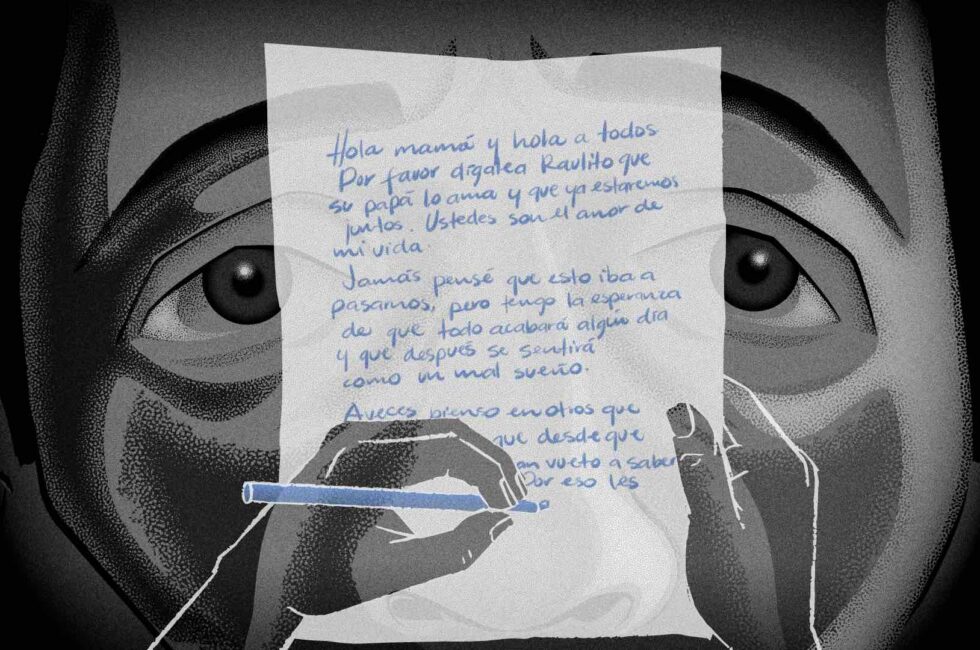 Hola mamá y hola a todos
Por favor dígalea Raulito que
su papá lo ama y que ya estaremos
juntos. Ustedes son el amor de
mi vida.
Jamás pensé que esto iba a
pasarnos, pero tengo la esperanza
de que todo acabará algún día
y que después se sentirá
como un mal sueño.
A veces pienso en otros que
que desde que
an vuelto a saber
Por eso les